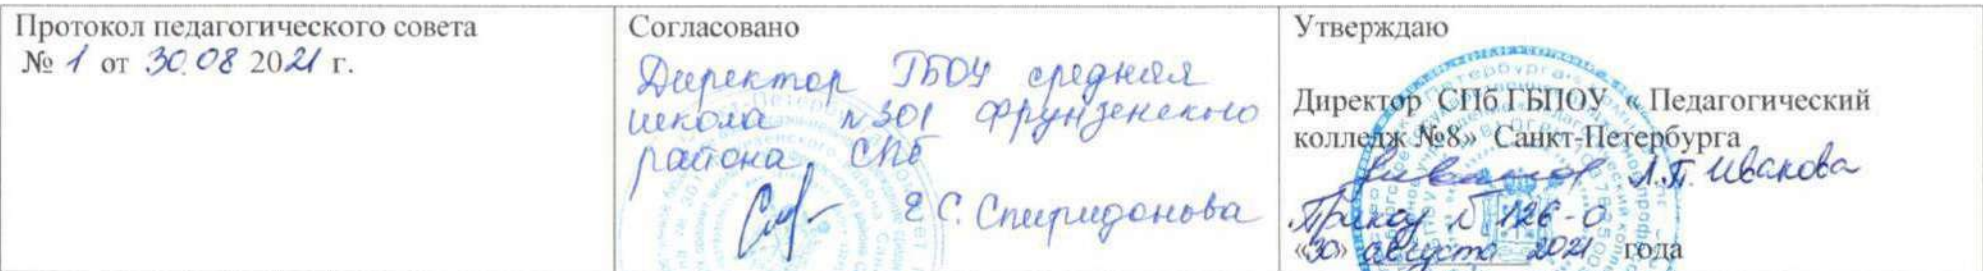 Протокол педагогического совета
№ 1 от 30.08 2021 г.
Согласовано
Директор ГБОУ средняя
школа №301 Фрунзенского
района СПб
Е.С. Спиридонова
Утверждаю
Директор СПб ГБПОУ « Педагогический
колледж №8» Санкт-Петербурга
Л.П. Иванова
Приказ № 126-О
«30» августа 2021 года